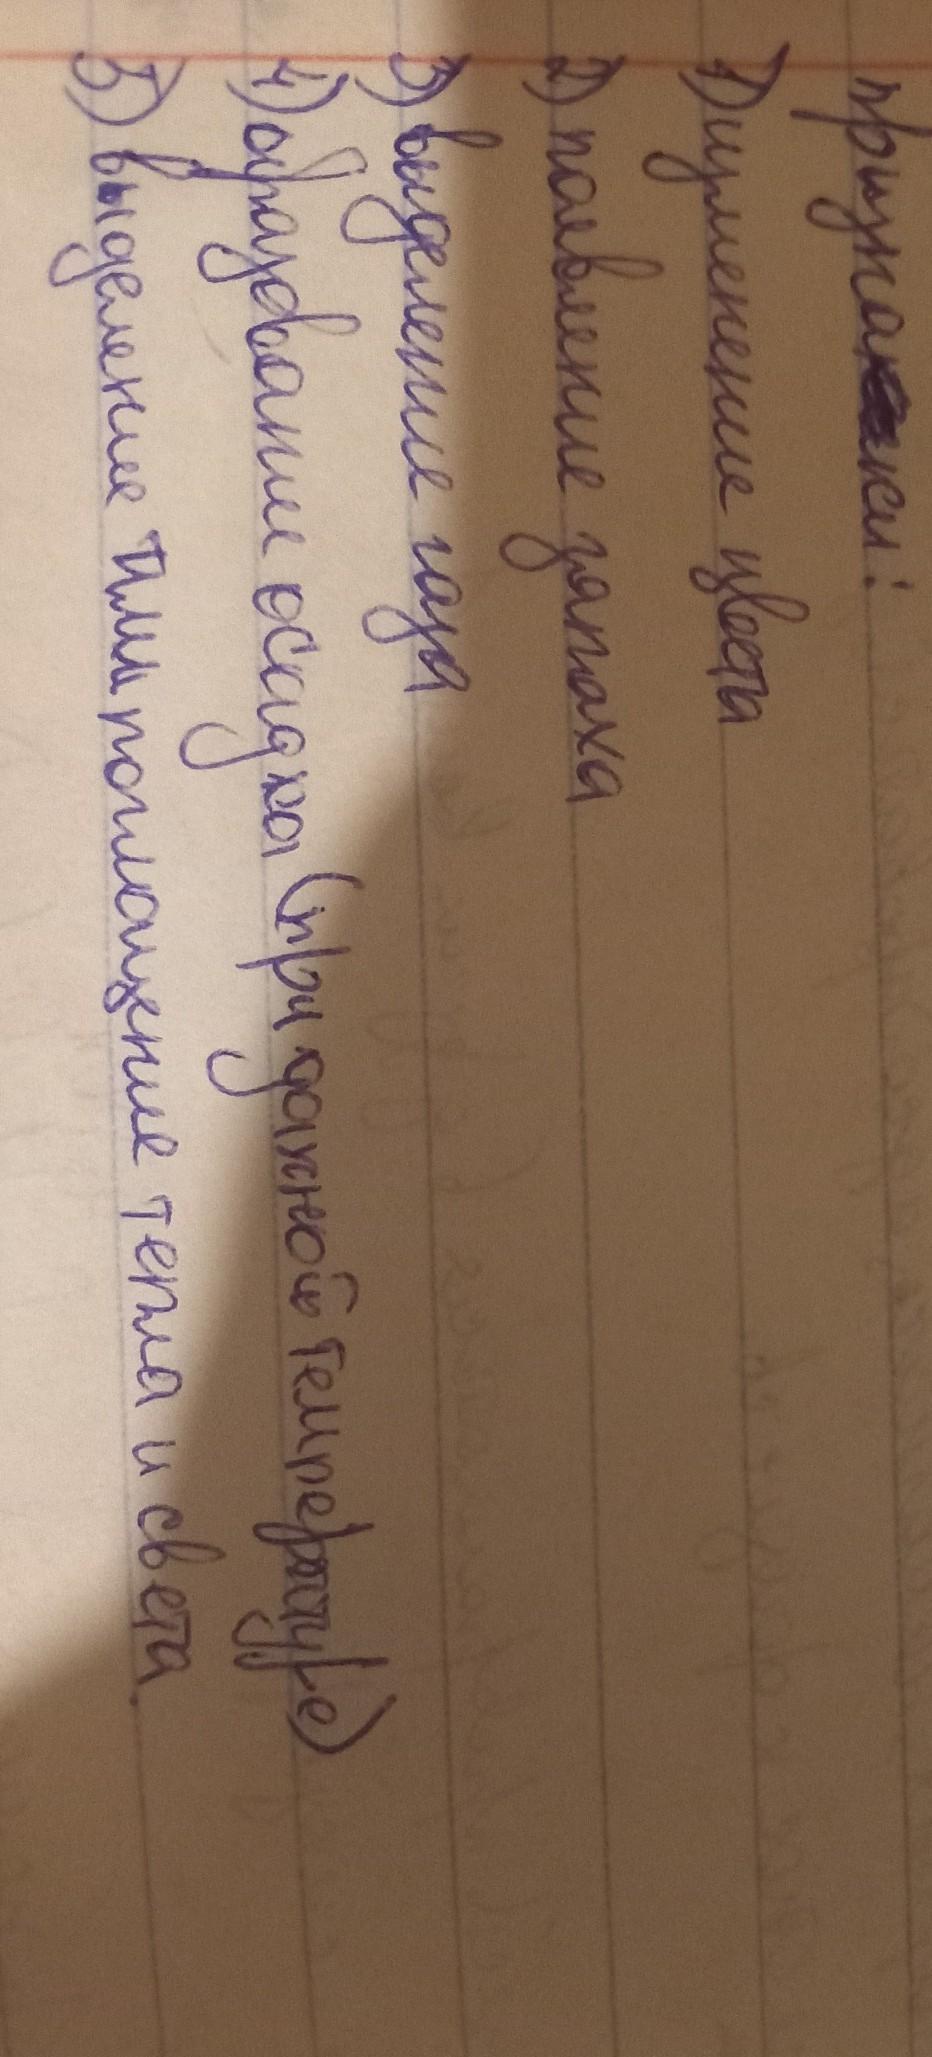 признаки:
1) изменение цвета
2) появление запаха
3) выделение газа
4) образование осадка (при данной температуре)
5) выделение или поглощение тепла и света.